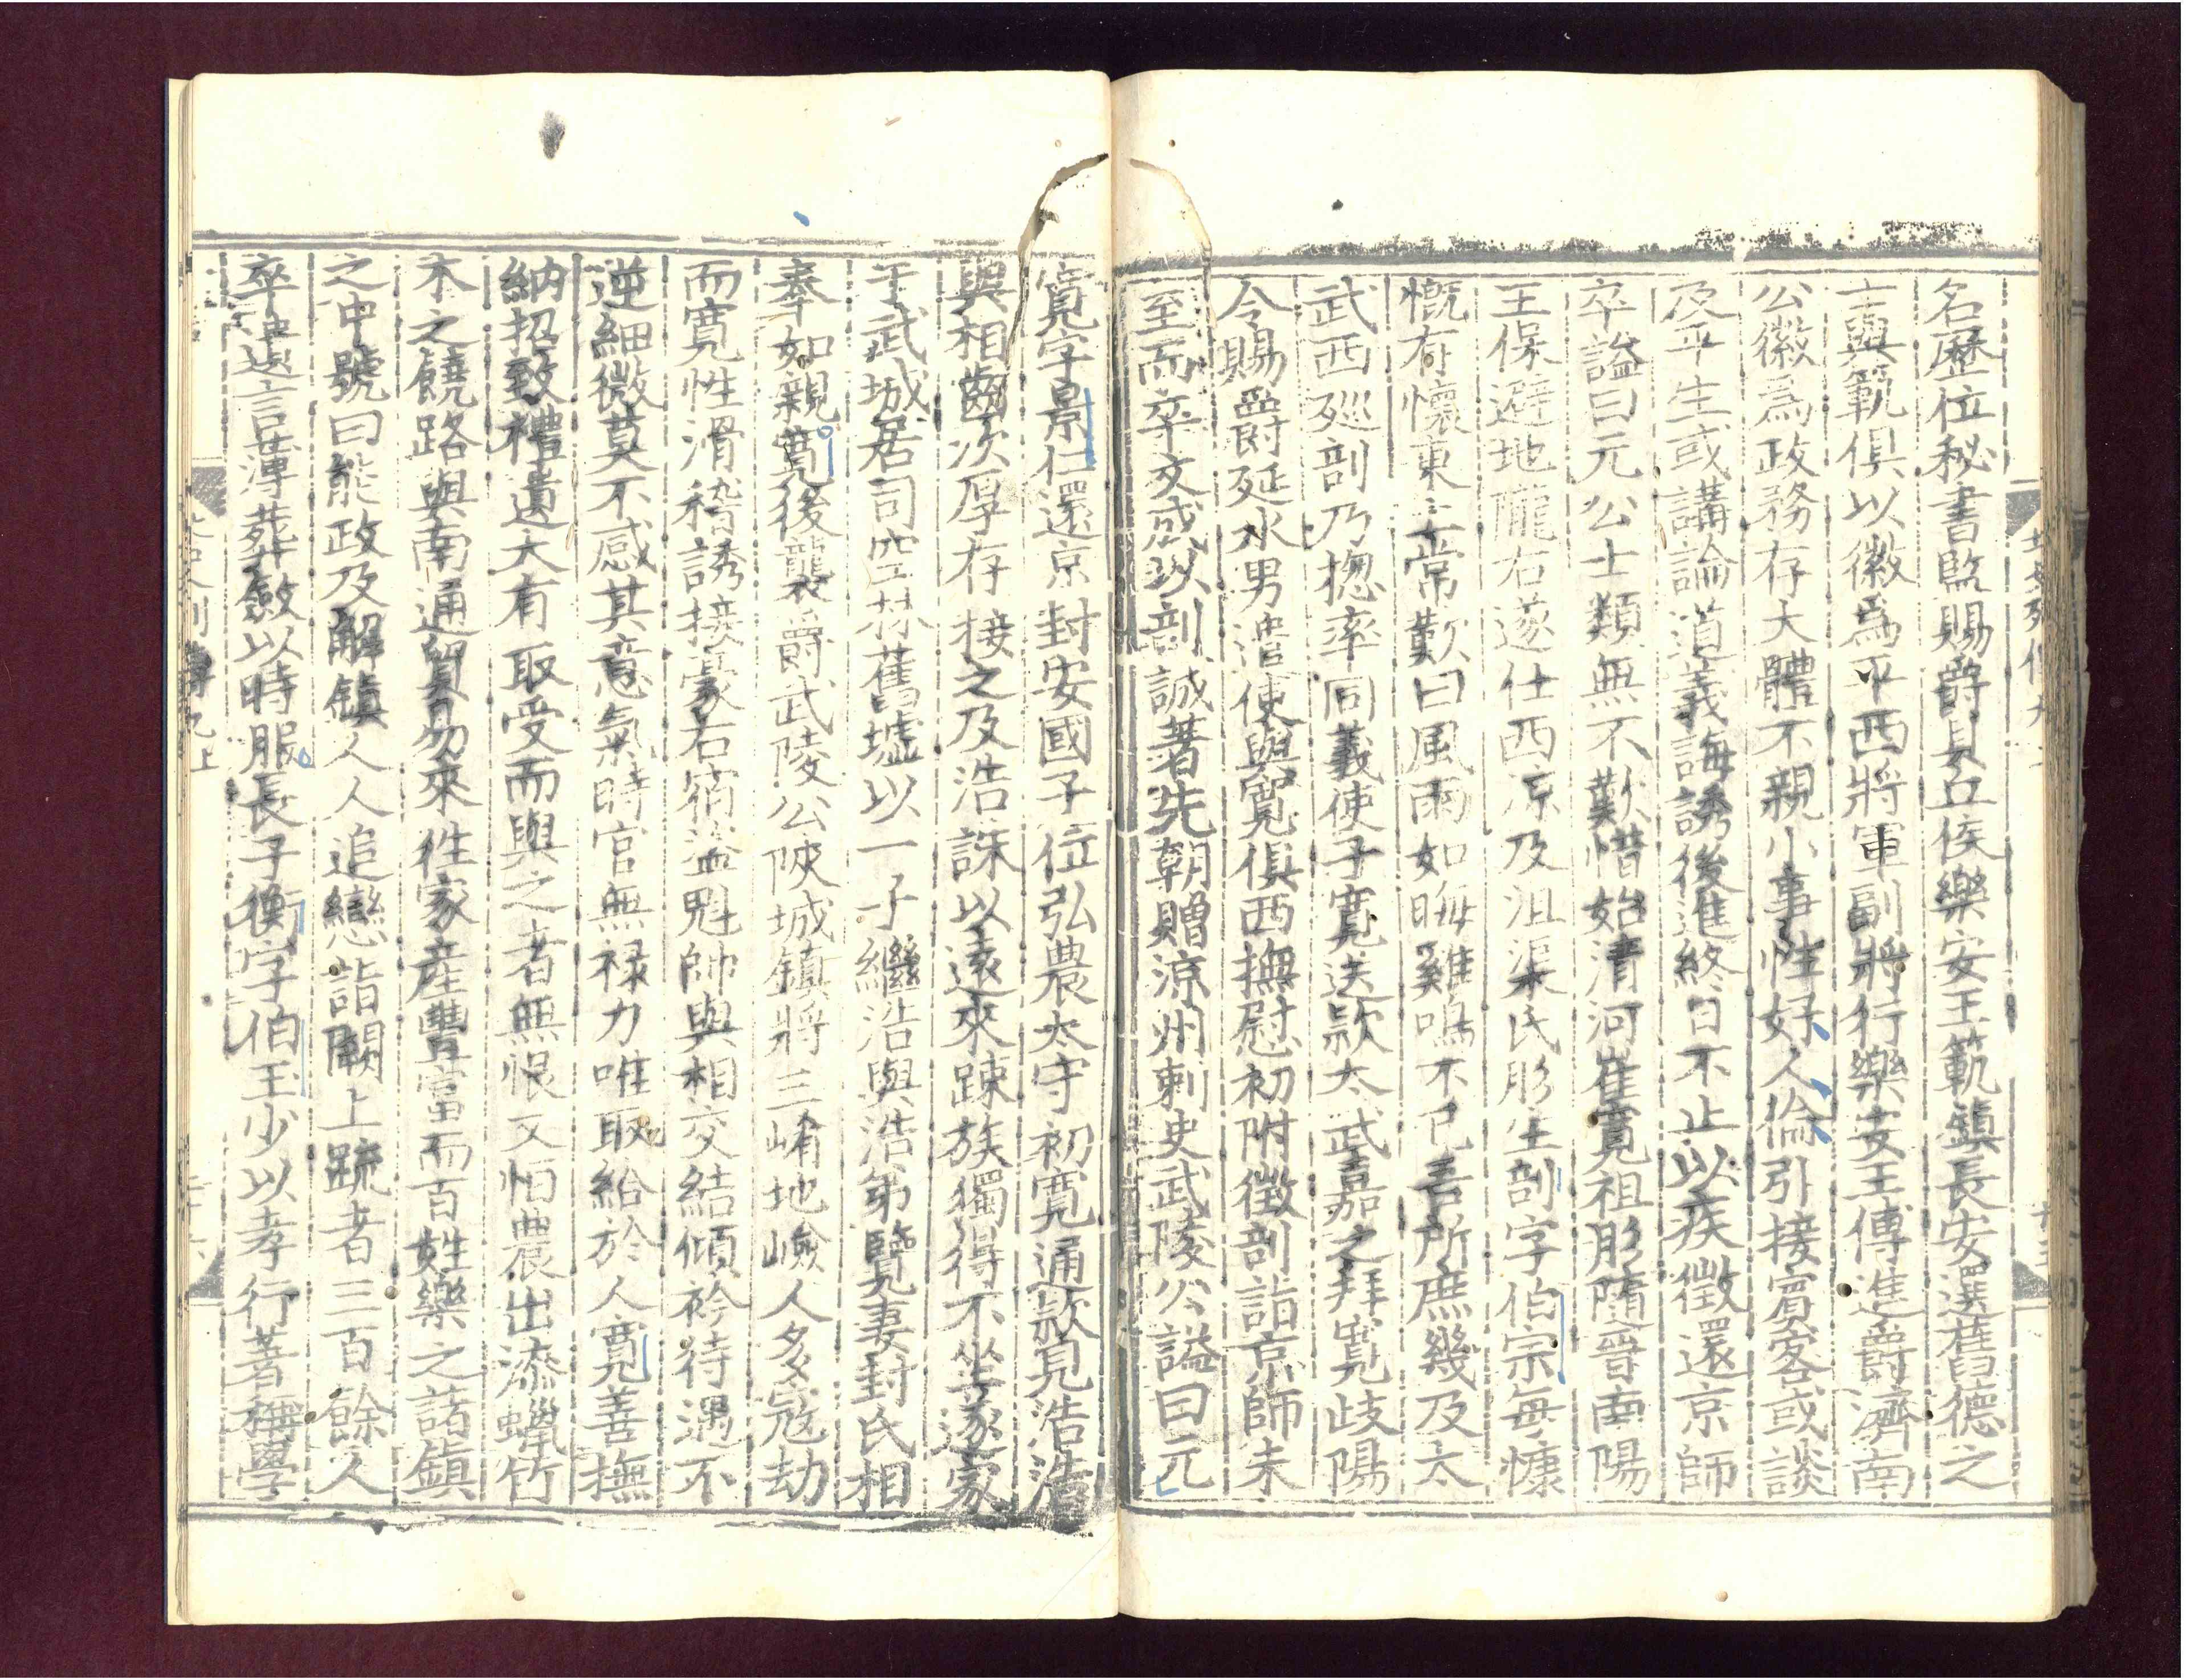 名歷位秘書監賜爵貝丘侯樂安王範鎮長安選舊德之
士與範俱以徽爲平西將軍副將行樂安王傅進爵濟南
公徽爲政務存大體不親小事性好人倫引接賓客或談
及平生或講論道義誨誘後進終日不止以疾徵還京師
卒謚曰元公士類無不歎惜始清河崔寬祖肜隨晉南陽
王保避地隴右遂仕西凉及沮渠氏肜生剖字伯宗每慷
慨有懷東土常歎曰風雨如晦雞鳴不已吾所庶幾及太
武西廵剖乃揔率同義使子寬送款太武嘉之拜寬岐陽
令賜爵延水男遣使與寬俱西撫慰初附徵剖詣京師未
至而卒文成以剖誠著先朝贈涼州刺史武陵公謚曰元
寬字景仁還京封安國子位弘農太守初寬通款見浩浩
與相齒次厚存接之及浩誅以遠來踈族獨得不坐遂家
于武城居司空林舊墟以一子繼浩與浩弟覽妻封氏相
奉如親寬後襲爵武陵公陝城鎮將三崤地嶮人多寇劫
而寬性滑稽誘接豪右宿盗魁帥與相交結傾衿待遇不
逆細微莫不感其意氣時官無禄力唯取給於人寬善撫
納招致禮遺大有取受而與之者無恨又恒農出漆蠟竹
木之饒路與南通貿易來往家産豐富而百姓樂之諸鎮
之中號曰能政及解鎮人人追戀詣闕上䟽者三百餘人
卒遺言薄葬斂以時服長子衡字伯玉少以孝行著稱學